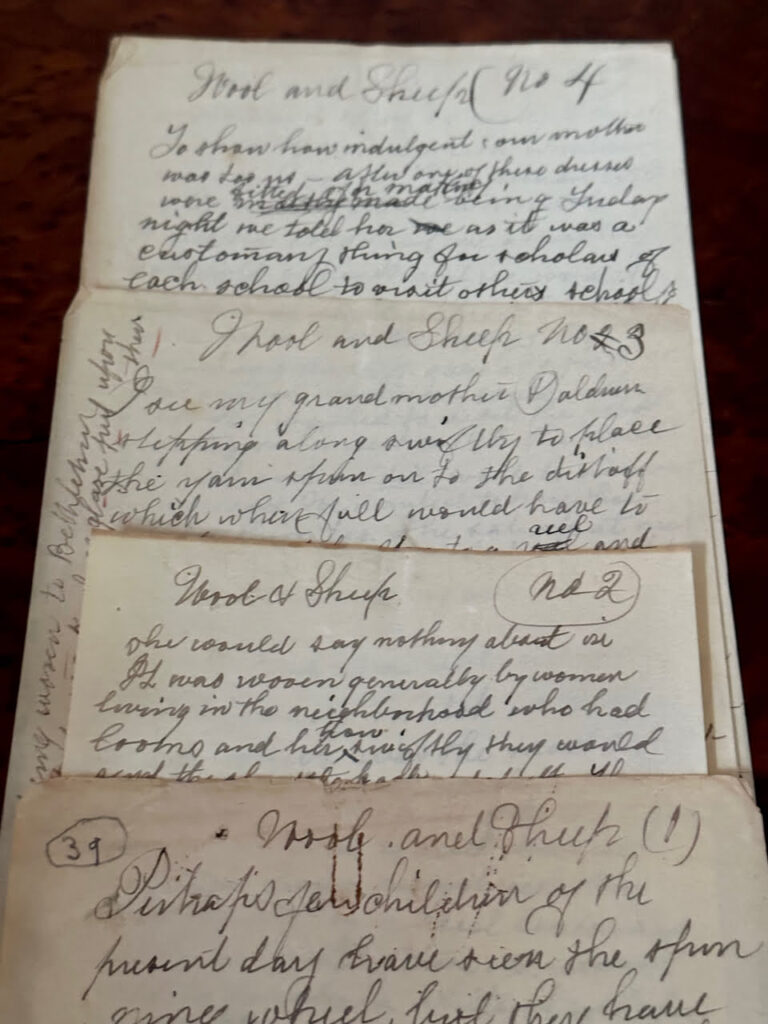 Wool and Sheep (No 4
To show how indulgent our mother
was to us – After one of these dresses
were fitted for making being Friday
night we told her as it was a
customary thing for scholars of
each school to visit others school
Wool and Sheep No 3
I see my grandmother Baldwin
stepping along swiftly to place
the yarn spun on to the distaff
which when full would have to
reel and
women to Bethlehem
place put upon
their
Wool & Sheep No 2
she would say nothing about it
It was woven generally by women
living in the neighborhood who had
looms and how swiftly they would
39 Wool and Sheep (1)
Perhaps few children of the
present day have seen the spin
ning wheel, but they have